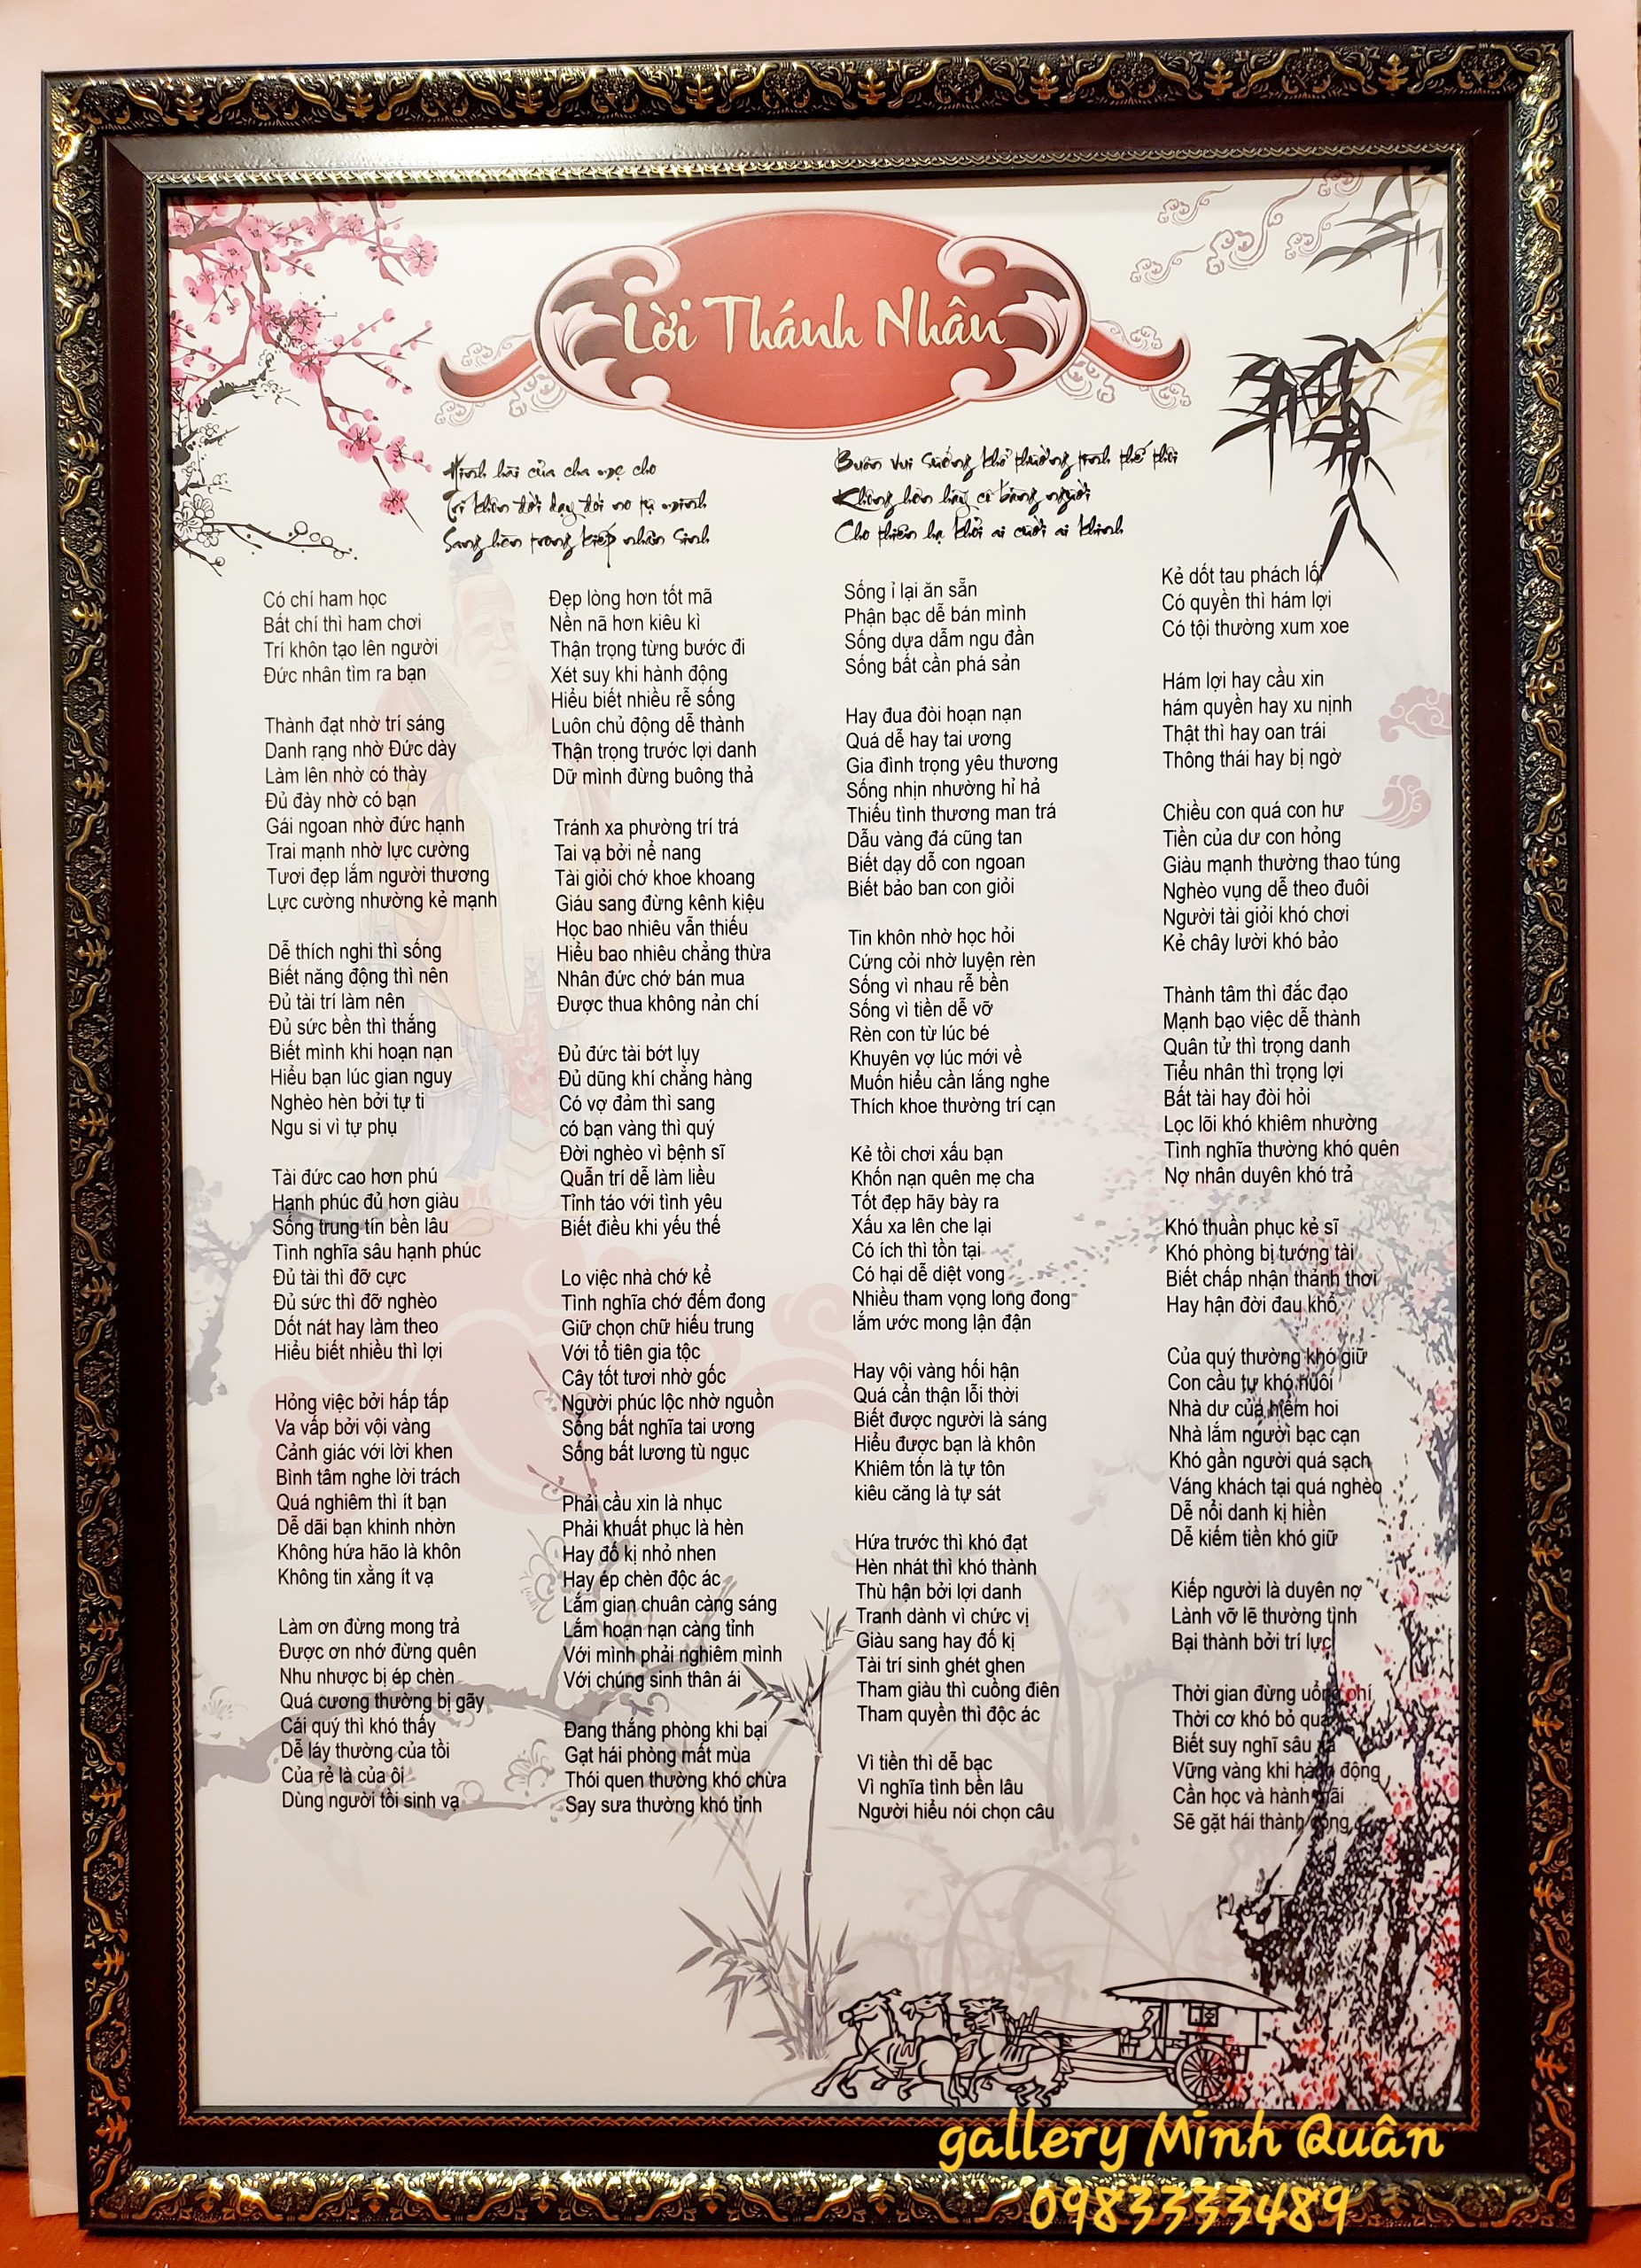 Lời Thánh Nhân
Hình hài của cha mẹ cho
Trí khôn đời dạy đói no tự mình
Sang hèn trong kiếp nhân sinh
Buồn vui sướng khổ thường tình thế thôi
Không hơn hãy cố bằng người
Cho thiên hạ khỏi ai cười ai khinh
Có chí ham học
Bất chí thì ham chơi
Trí khôn tạo lên người
Đức nhân tìm ra bạn
Thành đạt nhờ trí sáng
Danh rạng nhờ Đức dày
Làm lên nhờ có thày
Đủ đày nhờ có bạn
Gái ngoan nhờ đức hạnh
Trai mạnh nhờ lực cường
Tươi đẹp lắm người thương
Lực cường nhường kẻ mạnh
Dễ thích nghi thì sống
Biết năng động thì nên
Đủ tài trí làm nên
Đủ sức bền thì thắng
Biết mình khi hoạn nạn
Hiểu bạn lúc gian nguy
Nghèo hèn bởi tự ti
Ngu si vì tự phụ
Tài đức cao hơn phú
Hạnh phúc đủ hơn giàu
Sống trung tín bền lâu
Tình nghĩa sâu hạnh phúc
Đủ tài thì đỡ cực
Đủ sức thì đỡ nghèo
Dốt nát hay làm theo
Hiểu biết nhiều thì lợi
Hỏng việc bởi hấp tấp
Va vấp bởi vội vàng
Cảnh giác với lời khen
Bình tâm nghe lời trách
Quá nghiêm thì ít bạn
Dễ dãi bạn khinh nhờn
Không hứa hão là khôn
Không tin xằng ít vạ
Làm ơn đừng mong trả
Được ơn nhớ đừng quên
Nhu nhược bị ép chèn
Quá cương thường bị gãy
Cái quý thì khó thấy
Dễ láy thường của tồi
Của rẻ là của ôi
Dùng người tồi sinh vạ
Đẹp lòng hơn tốt mã
Nền nã hơn kiêu kì
Thận trọng từng bước đi
Xét suy khi hành động
Hiểu biết nhiều rễ sống
Luôn chủ động dễ thành
Thận trọng trước lợi danh
Dữ mình đừng buông thả
Tránh xa phường trí trá
Tai vạ bởi nể nang
Tài giỏi chớ khoe khoang
Giáu sang đừng kênh kiệu
Học bao nhiêu vẫn thiếu
Hiểu bao nhiêu chẳng thừa
Nhân đức chớ bán mua
Được thua không nản chí
Đủ đức tài bớt lụy
Đủ dũng khí chẳng hàng
Có vợ đảm thì sang
có bạn vàng thì quý
Đời nghèo vì bệnh sĩ
Quẫn trí dễ làm liều
Tỉnh táo với tình yêu
Biết điều khi yếu thế
Lo việc nhà chớ kể
Tình nghĩa chớ đếm đong
Giữ chọn chữ hiếu trung
Với tổ tiên gia tộc
Cây tốt tươi nhờ gốc
Người phúc lộc nhờ nguồn
Sống bất nghĩa tai ương
Sống bất lương tù ngục
Phải cầu xin là nhục
Phải khuất phục là hèn
Hay đố kị nhỏ nhen
Hay ép chèn độc ác
Lắm gian chuân càng sáng
Lắm hoạn nạn càng tỉnh
Với mình phải nghiêm mình
Với chúng sinh thân ái
Đang thắng phòng khi bại
Gạt hái phòng mất mùa
Thói quen thường khó chừa
Say sưa thường khó tỉnh
Sống ỉ lại ăn sẵn
Phận bạc dễ bán mình
Sống dựa dẫm ngu đần
Sống bất cần phá sản
Hay đua đòi hoạn nạn
Quá dễ hay tai ương
Gia đình trọng yêu thương
Sống nhịn nhường hỉ hả
Thiếu tình thương man trá
Dẫu vàng đá cũng tan
Biết dạy dỗ con ngoan
Biết bảo ban con giỏi
Tin khôn nhờ học hỏi
Cứng cỏi nhờ luyện rèn
Sống vì nhau rễ bền
Sống vì tiền dễ vỡ
Rèn con từ lúc bé
Khuyên vợ lúc mới về
Muốn hiểu cần lắng nghe
Thích khoe thường trí cạn
Kẻ tồi chơi xấu bạn
Khốn nạn quên mẹ cha
Tốt đẹp hãy bày ra
Xấu xa lên che lại
Có ích thì tồn tại
Có hại dễ diệt vong
Nhiều tham vọng long đong
lắm ước mong lận đận
Hay vội vàng hối hận
Quá cẩn thận lỗi thời
Biết được người là sáng
Hiểu được bạn là khôn
Khiêm tốn là tự tôn
kiêu căng là tự sát
Hứa trước thì khó đạt
Hèn nhát thì khó thành
Thù hận bởi lợi danh
Tranh dành vì chức vị
Giàu sang hay đố kị
Tài trí sinh ghét ghen
Tham giàu thì cuồng điên
Tham quyền thì độc ác
Vì tiền thì dễ bạc
Vì nghĩa tình bền lâu
Người hiểu nói chọn câu
Kẻ dốt tau phách lối
Có quyền thì hám lợi
Có tội thường xum xoe
Hám lợi hay cầu xin
hám quyền hay xu nịnh
Thật thì hay oan trái
Thông thái hay bị ngờ
Chiều con quá con hư
Tiền của dư con hỏng
Giàu mạnh thường thao túng
Nghèo vụng dễ theo đuôi
Người tài giỏi khó chơi
Kẻ chây lười khó bảo
Thành tâm thì đắc đạo
Mạnh bạo việc dễ thành
Quân tử thì trọng danh
Tiểu nhân thì trọng lợi
Bất tài hay đòi hỏi
Lọc lõi khó khiêm nhường
Tình nghĩa thường khó quên
Nợ nhân duyên khó trả
Khó thuần phục kẻ sĩ
Khó phòng bị tướng tài
Biết chấp nhận thảnh thơi
Hay hận đời đau khổ
Của quý thường khó giữ
Con cầu tự khó nuôi
Nhà dư của hiếm hoi
Nhà lắm người bạc cạn
Khó gần người quá sạch
Váng khách tại quá nghèo
Dễ nổi danh kị hiền
Dễ kiếm tiền khó giữ
Kiếp người là duyên nợ
Lành vỡ lẽ thường tình
Bại thành bởi trí lực
Thời gian đừng uổng phí
Thời cơ khó bỏ qua
Biết suy nghĩ sâu xa
Vững vàng khi hành động
Cần học và hành mãi
Sẽ gặt hái thành công
gallery Minh Quân
0983333489